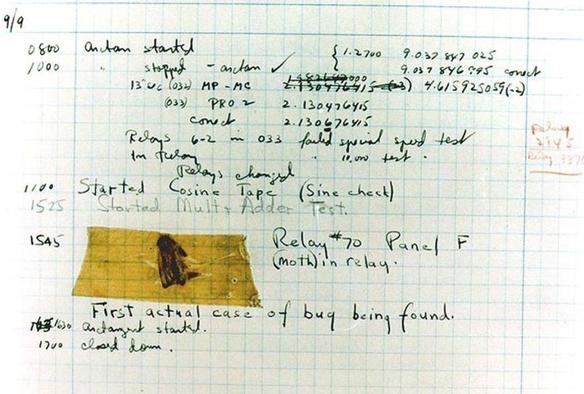 9/9
0800 antan started { 1.2700 9.037 847 025
1000 " stopped - antan ✓ 9.037 846 995 correct
13"uc (032) MP - MC 2.130476415 4.615925059(-2)
(033) PRO 2 2.130476415
correct 2.130676415
Relays 6-2 in 033 failed special speed test
in Relay " 10,000 test.
Relays changed
1100 Started Cosine Tape (Sine check)
1525 Started Mult+Adder Test.
1545 Relay #70 Panel F
(moth) in relay.
First actual case of bug being found.
1630 antangent started.
1700 closed down.
Relay
2145
Relay 3370